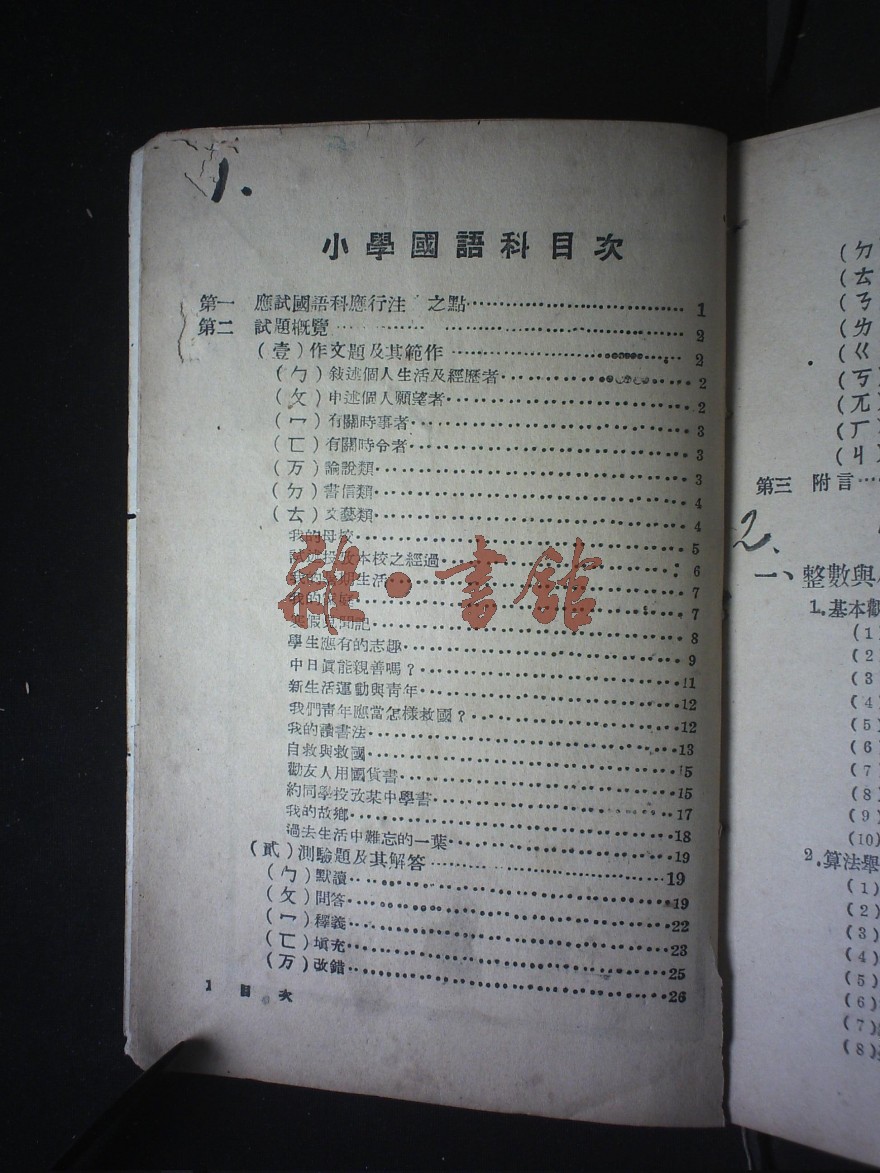 1.
小學國語科目次
第一 應試國語科應行注 之點 1
第二 試題概覽 2
(壹)作文題及其範作 2
(ㄅ)敍述個人生活及經歷者 2
(ㄆ)申述個人願望者 2
(ㄇ)有關時事者 3
(ㄈ)有關時令者 3
(万)論說類 3
(ㄉ)書信類 4
(ㄊ)文藝類 4
我的母校 5
投攷本校之經過 6
我的 期生活 7
我的家庭 7
寒假見聞記 8
學生應有的志趣 9
中日眞能親善嗎? 11
新生活運動與靑年 12
我們靑年應當怎樣救國? 12
我的讀書法 13
自救與救國 15
勸友人用國貨書 15
約同學投攷某中學書 17
我的故鄉 18
過去生活中難忘的一葉 19
(貳)測驗題及其解答 19
(ㄅ)默讀 19
(ㄆ)問答 22
(ㄇ)釋義 23
(ㄈ)塡充 25
(万)改錯 26
1 目次
雜·書館
(ㄉ
(ㄊ
(ㄋ
(ㄌ
(ㄍ
(ㄎ
(兀
(ㄏ
(ㄐ
第三 附言
2.
一、整數與
1.基本觀
(1)
(2
(3
(4
(5)
(6
(7
(8
(9)
(10)
2.算法舉
(1)
(2)
(3)
(4)
(5)
(6)
(7)
(8)